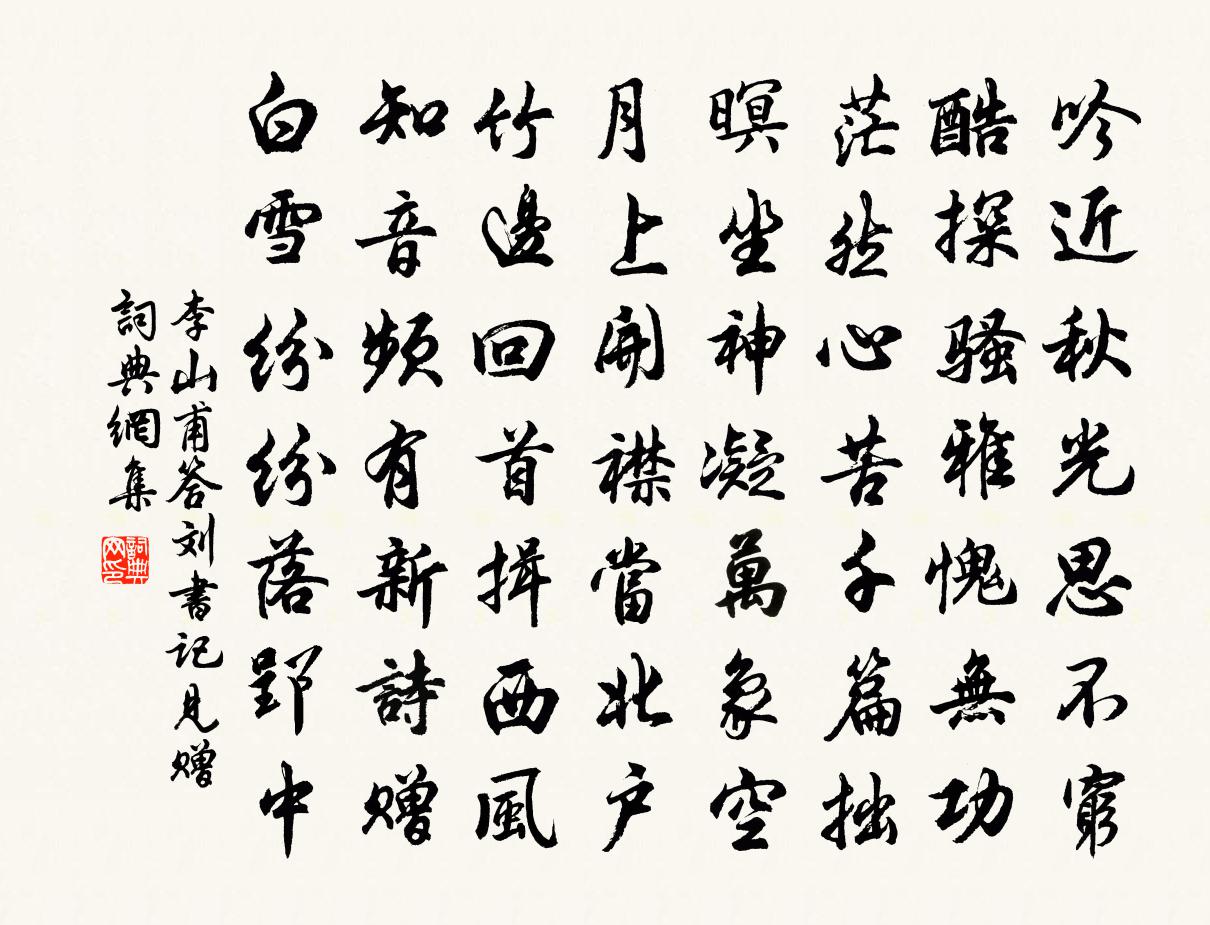 吟近秋光思不窮
酷探騷雅愧無功
茫然心苦千篇拙
暝坐神凝萬象空
月上開襟當北户
竹邊回首揖西風
知音頻有新詩贈
白雪紛紛落郢中
李山甫答刘書記見赠
詞典網集
詞典网印